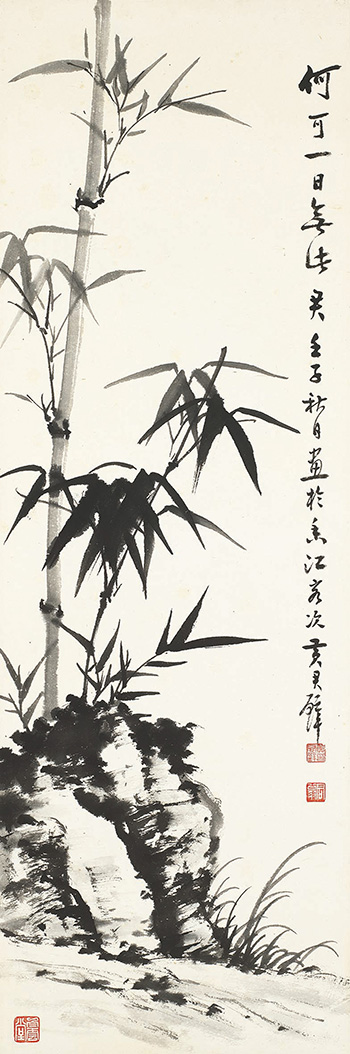 何可一日無此君壬子秋日畫於香江客次黃君璧